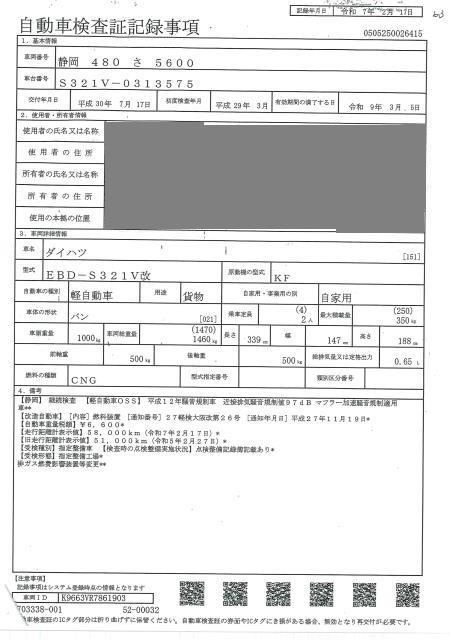 自動車検査証記録事項
記録年月日 令和 7年 2月 17日
0505250026415
1. 基本情報
車両番号 静岡 480 さ 5600
車台番号 S321V-0313575
交付年月日 平成30年 7月 17日 初度検査年月 平成29年 3月 有効期間の満了する日 令和 9年 3月 5日
2. 使用者・所有者情報
使用者の氏名又は名称
使用者の住所
所有者の氏名又は名称
所有者の住所
使用の本拠の位置
3. 車両詳細情報
車名 ダイハツ [151]
型式 EBD-S321V改 原動機の型式 KF
自動車の種別 軽自動車 用途 貨物 自家用・事業用の別 自家用
車体の形状 バン [021] 乗車定員 (4) 2人 最大積載量 (250) 350kg
車両重量 1000kg 車両総重量 (1470) 1460kg 長さ 339cm 幅 147cm 高さ 188cm
前軸重 500kg 後軸重 500kg 総排気量又は定格出力 0.65L
燃料の種類 CNG 型式指定番号 類別区分番号
4. 備考
【静岡】 継続検査 【軽自動車OSS】 平成12年騒音規制車 近接排気騒音規制値97dB マフラー加速騒音規制適用
車**
【改造自動車】 [内容] 燃料装置 [通知番号] 27軽検大阪改第26号 [通知年月日] 平成27年11月19日*
【自動車重量税額】 ¥6,600*
【走行距離計表示値】 58,000km (令和7年2月17日)*
【旧走行距離計表示値】 51,000km (令和5年2月27日)*
【受検種別】 指定整備車 【検査時の点検整備実施状況】 点検整備記録簿記載あり*
【受検形態】 指定整備工場*
排ガス燃費影響装置等変更**
【注意事項】
記録事項はシステム登録時点の情報となります
車両ID K9663VR7861903
703338-001 52-00032
動車検査証のICタグ部分は折り曲げずに保管ください。自動車検査証の券面やICタグにき損がある場合、無効となり再交付が必要です。